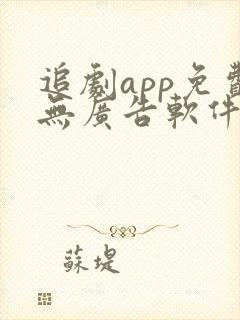 追劇app免費
無廣告軟件
蘇堤